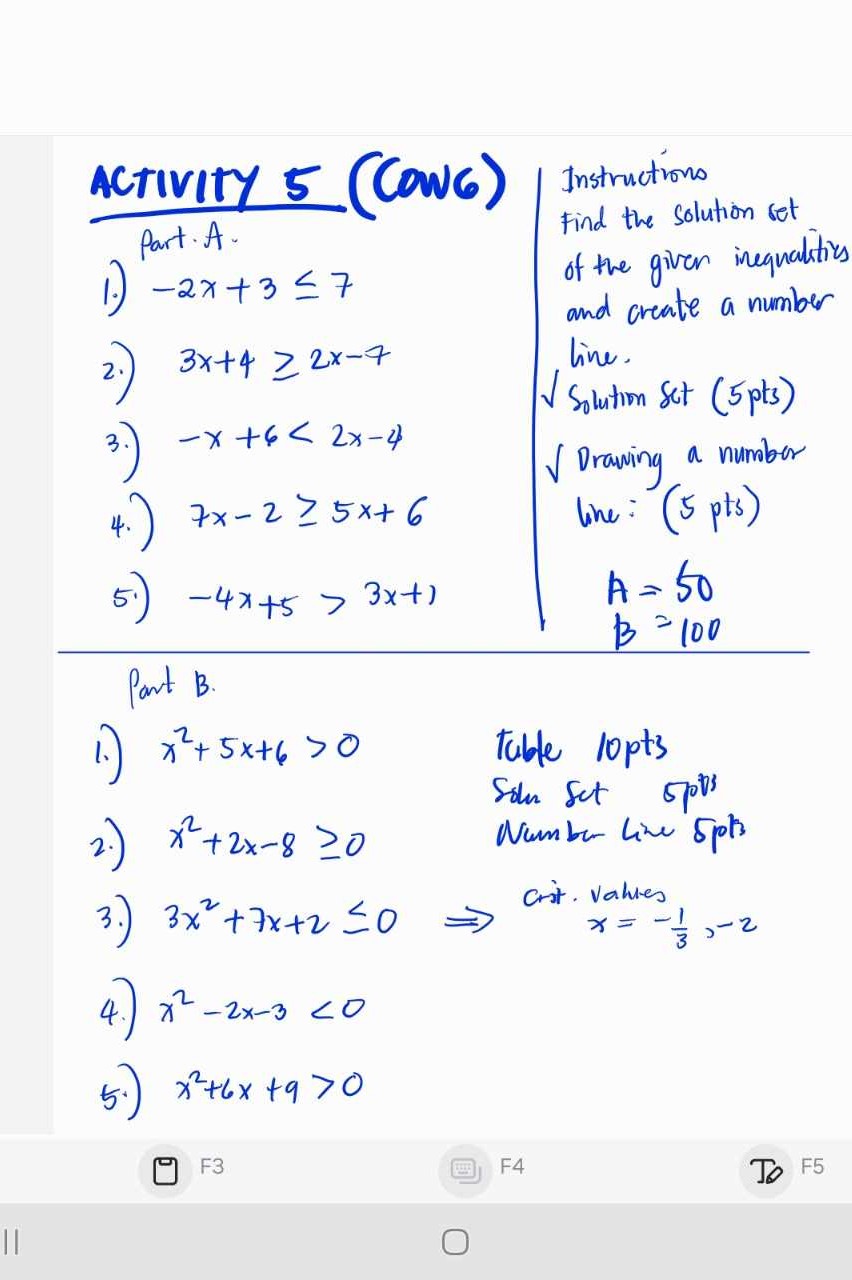 ACTIVITY 5 (COW6)
Part. A.
1.) -2x+3 ≤ 7
2.) 3x+4 ≥ 2x-7
3.) -x+6 < 2x-4
4.) 7x-2 ≥ 5x+6
5.) -4x+5 > 3x+1
Instructions
Find the solution set
of the given inequalities
and create a number
line.
√ Solution Set (5pts)
√ Drawing a number
line: (5 pts)
A = 50
B = 100
Part B.
1.) x²+5x+6 >0
2.) x²+2x-8 ≥0
3.) 3x²+7x+2 ≤0 ⇒
4.) x²-2x-3 <0
5.) x²+6x+9 >0
Table 10pts
Soln Set 5pts
Number line 5pts
Crit. values
x = -1/3, -2
F3 F4 F5